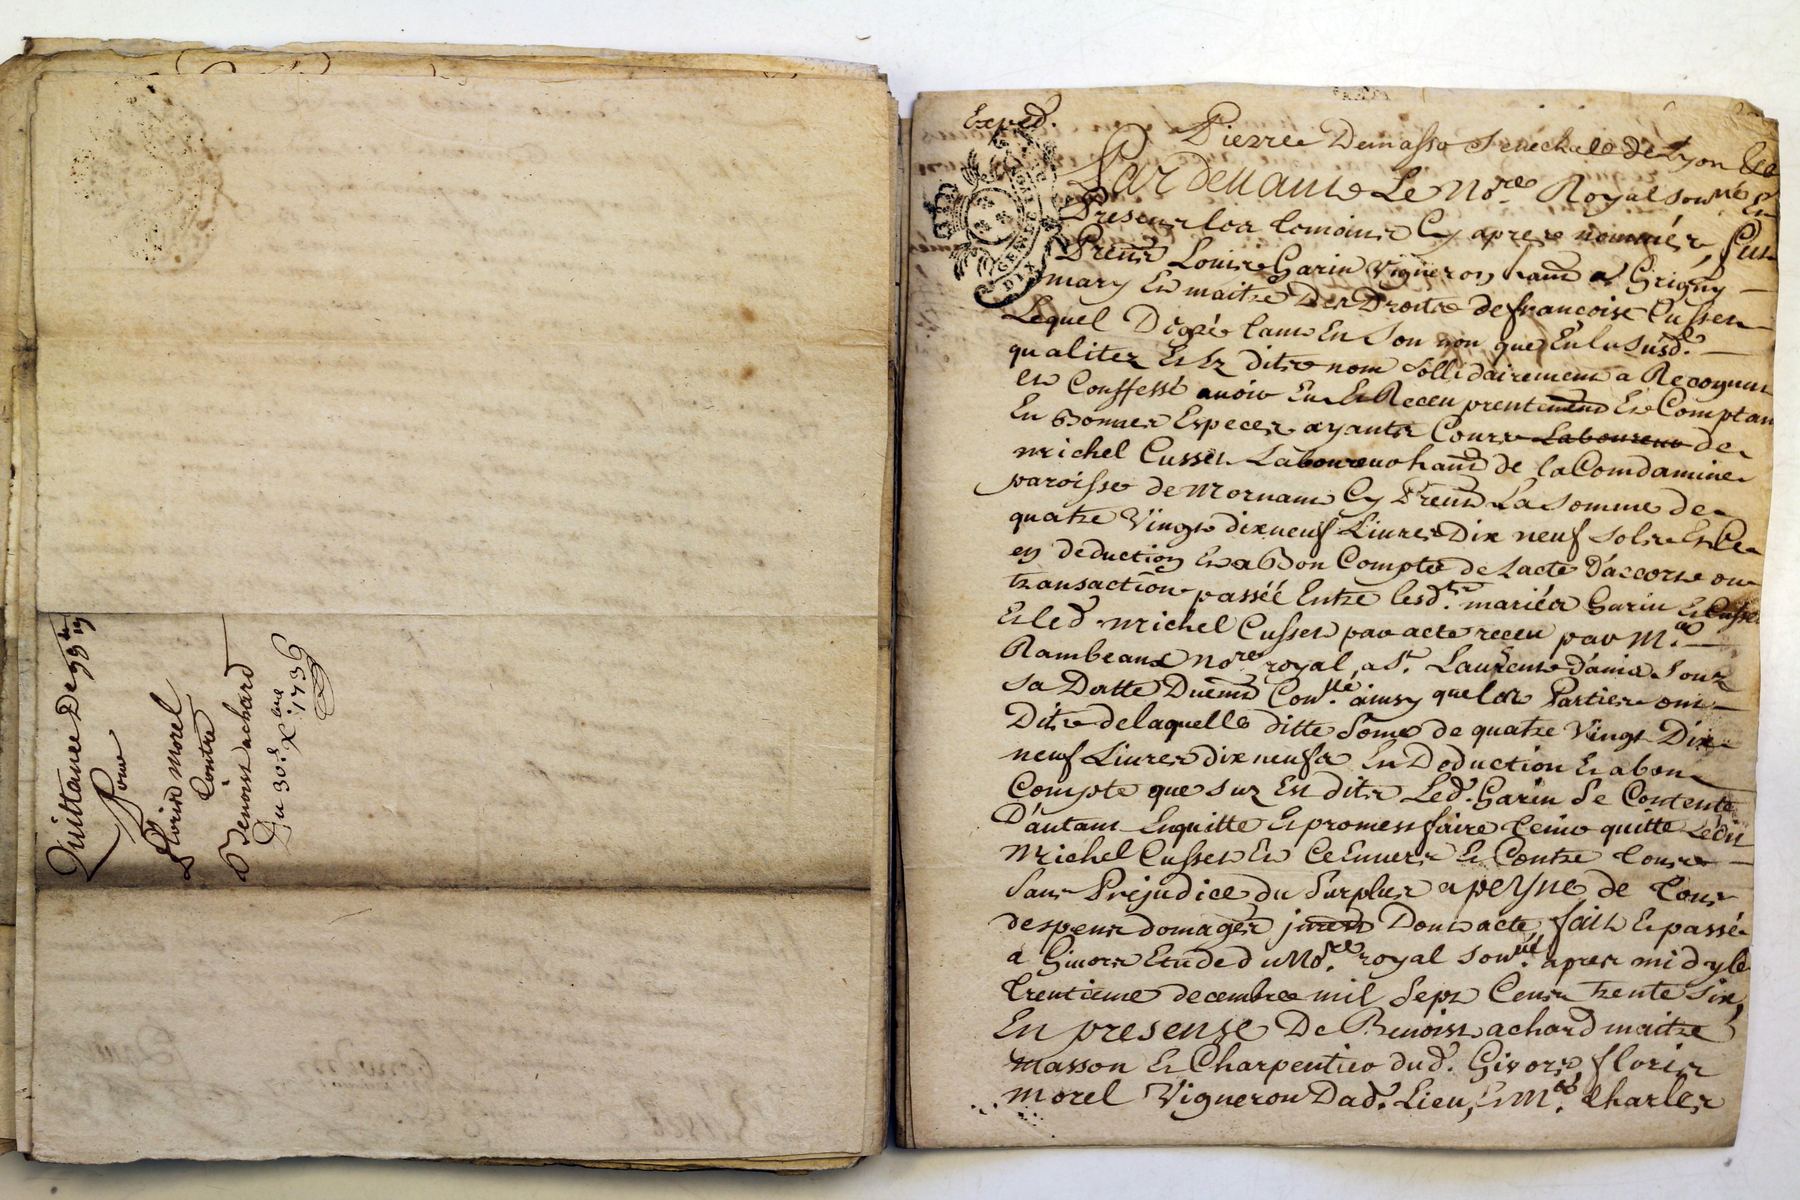 Quittance De 99ᵗᵗ 19ˢ
Pour
Florin morel
Contre
Benoist achard
Du 30.e Xbre 1736
Exped.
GENER
DIX
Pierre Demasso Senechal de Lyon
Pardevant Le No.re Royal sousné Et
Present les temoins Cy apres nommés, fut
Present Louis Garin Vigneron hant a Grigny
mary Et maitre Des Droits de francoise Cusset
Lequel Degré tant En Son non que En la Susd.
qualitez Et Sz dits nom sollidairement a Recognut
et Conffessé avoir Eu Et Receu prentement Et Comptant
En Bonnes Especes ayants Cours Laboureur de
michel Cusset Laboureur hant de la Comdamine
paroisse de Mornant Cy Prent La Somme de
quatre Vingt dix neuf Livres Dix neuf sols Et Ce
en deduction Et a Bon Compte de Lacte D'accort ou
transaction passéé Entre lesd.ts mariés Garin Et Cusset
Et led. michel Cusset par acte receu par M.e
Rambeaux No.re royal a S.t Laurent D'ania Sous
Sa Datte Duemt Con.llé ainsy que les Parties ont
Dits de laquelle ditte Some de quatre Vingt Dix
neuf Livres dix neuf s En Deduction Et abon
Compte que Sus Est dits Led. Garin Se Contente
D'autant Enquitte Et promest faire tenir quitte Ledit
Michel Cusset Et Ce Envers Et Contre tous
Sans Préjudice du Surplus a peyne de tous
despens domages intrest Dont acte fait Et passé
a Givors Etude du No.re royal Sous.né apres midy le
trentieme decembre mil Sept Cents trente Six,
En presense De Benoist achard maitre
masson Et Charpentier dud. Givors florin
morel Vigneron Dud. Lieu, Et M.e Charles